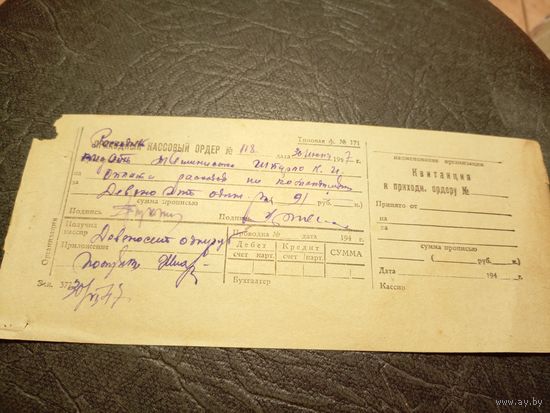 Расходный
ПРИХОДНЫЙ КАССОВЫЙ ОРДЕР № 118
Типовая ф. № 171
дата 30 июня 1947 г.
Выдать К. И.
на расходов по командировке
Девяносто один руб. 91 руб. к.
сумма прописью
Подпись Подпись
Получил
кассир Девяносто один руб
Приложение
Зак. 372
30/VI 47
Организация
Проводка № дата 194 г.
Дебет Кредит СУММА
счет карт. счет карт.
Бухгалтер
наименование организации
Квитанция
к приходн. ордеру №
Принято от
на
сумма прописью
( руб. к.)
Дата 194 г.
Кассир
www.ay.by